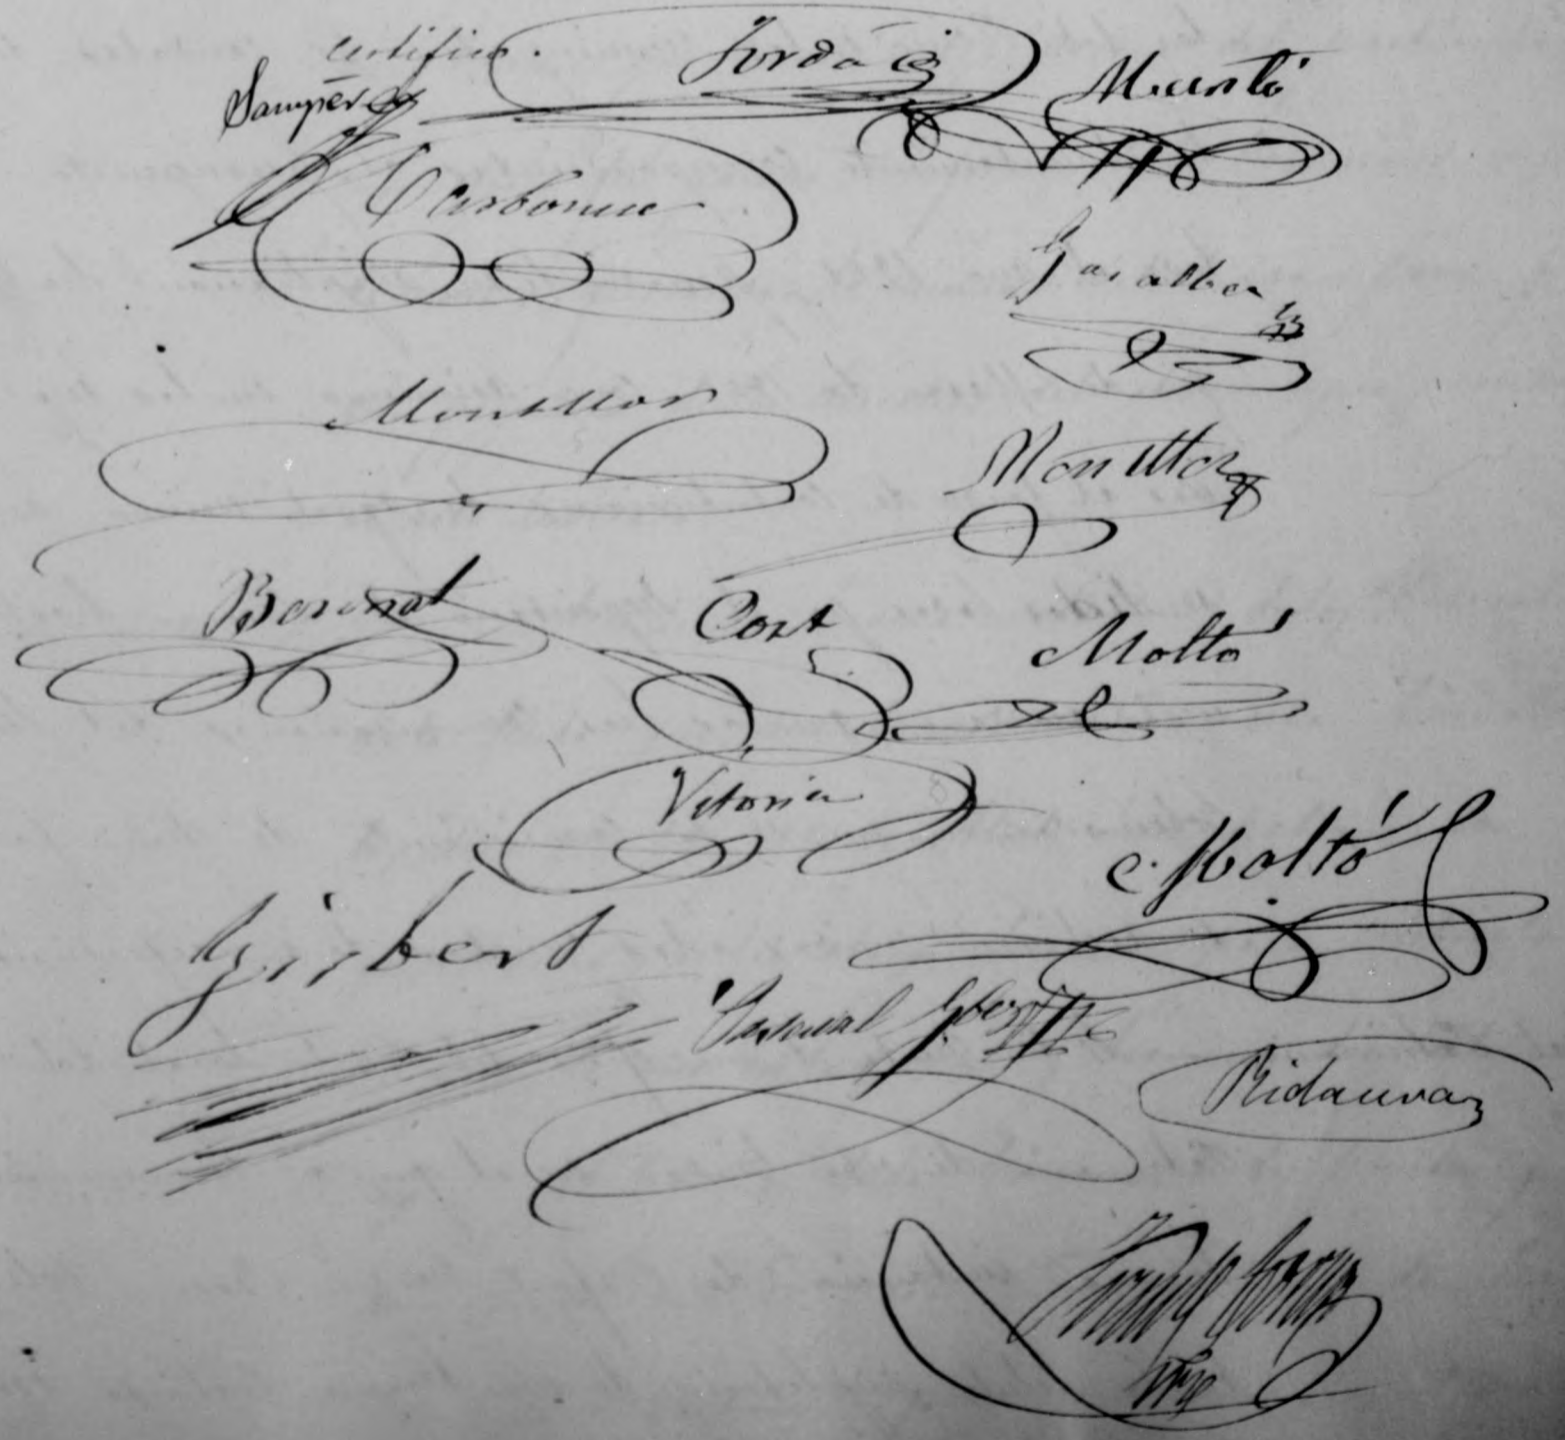 certifico.
Samper Jordá Muntó
Carbonell
Garalber
Montllor
Montllor
Boronat Cort Moltó
Vitoria
Moltó
Gisbert
Pascual Gibert
Ridaura